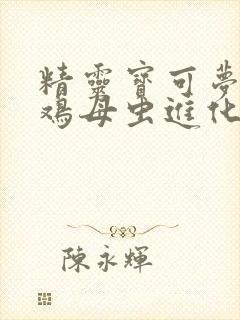 精靈寶可夢
鸡母虫進化
陳永輝